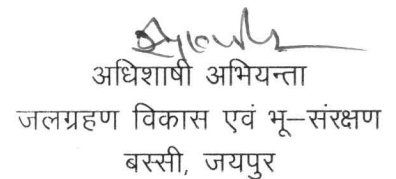 अधिशाषी अभियन्ता
जलग्रहण विकास एवं भू–संरक्षण
बस्सी, जयपुर